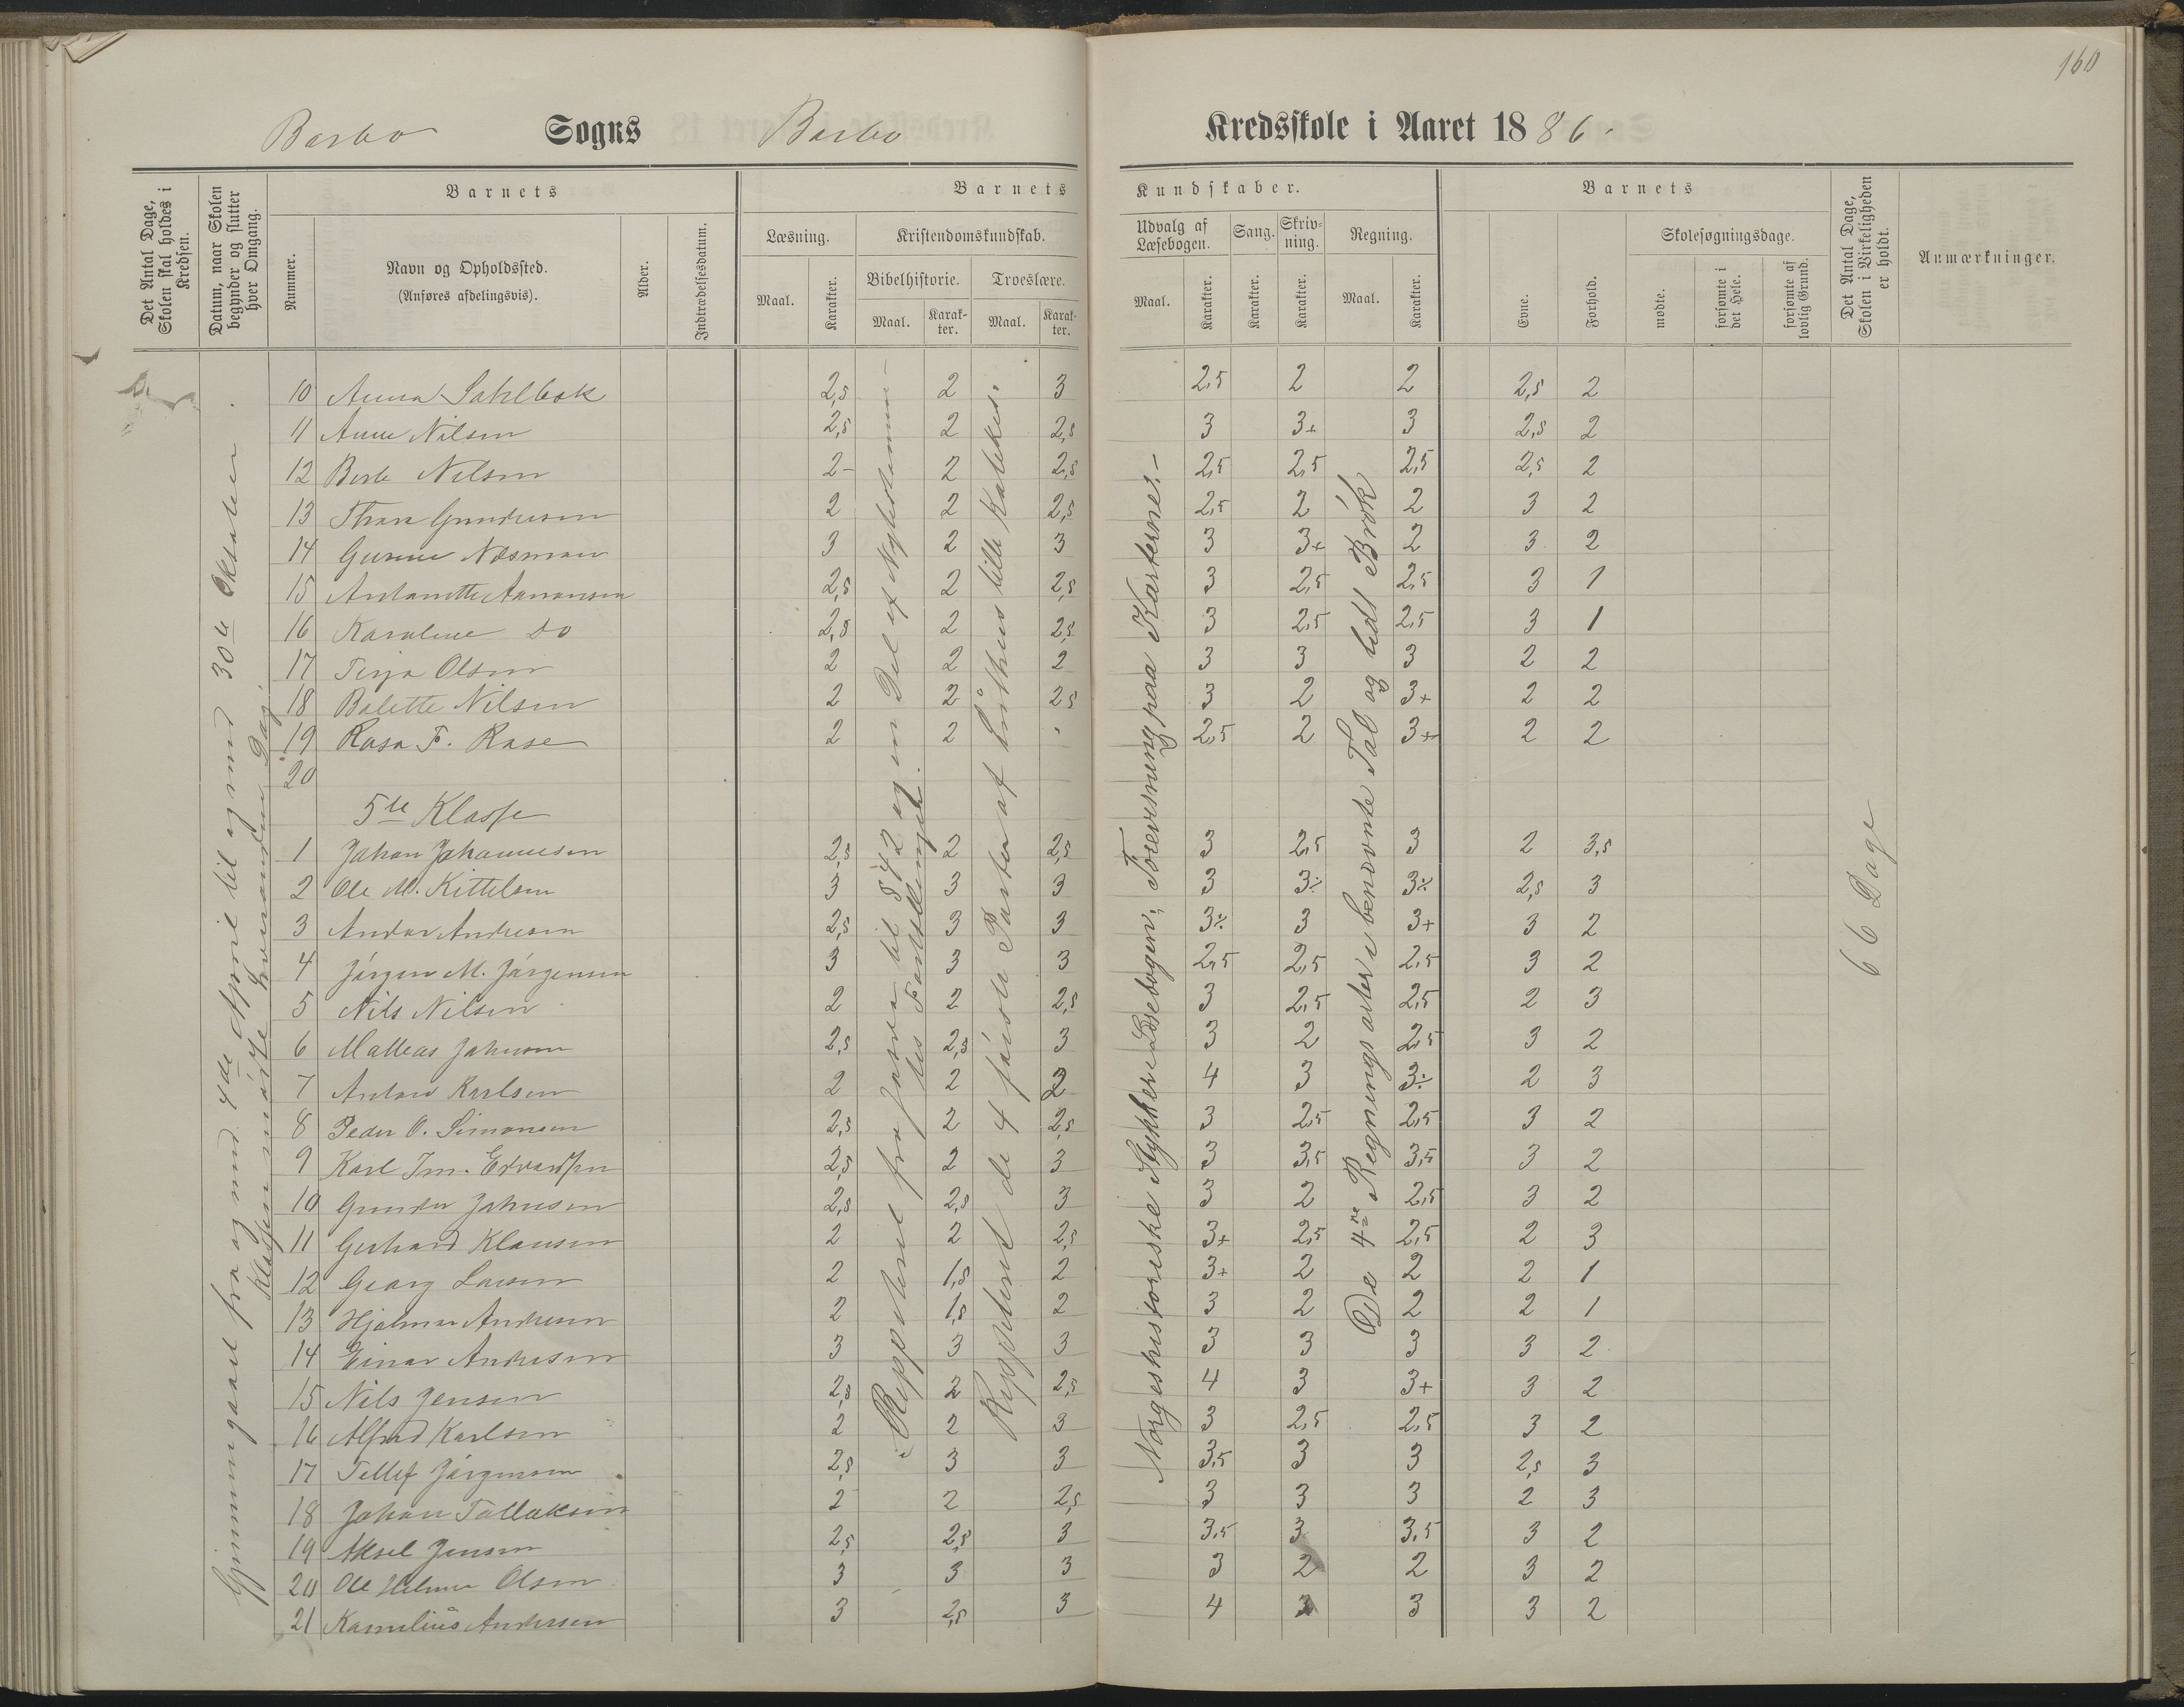 160
Barbo Sogns Barbo Kredsskole i Aaret 1886.
Det Antal Dage, Skolen skal holdes i Kredsen.
Datum, naar Skolen begynder og slutter hver Omgang.
Barnets
Nummer.
Navn og Opholdssted.
(Anføres afdelingsvis).
Alder.
Indtrædelsesdatum.
Barnets Kundskaber.
Læsning.
Maal.
Karakter.
Kristendomskundskab.
Bibelhistorie.
Maal.
Karakter.
Troeslære.
Maal.
Karakter.
Udvalg af Læsebogen.
Maal.
Karakter.
Sang.
Karakter.
Skrivning.
Karakter.
Regning.
Maal.
Karakter.
Barnets
Evne.
Forhold.
Skolesøgningsdage.
mødte.
forsømte i det Hele.
forsømte af lovlig Grund.
Det Antal Dage, Skolen i Virkeligheden er holdt.
Anmærkninger.
10 Anna Sahlbak 2,5 2 3 2,5 2 2 2,5 2
11 Anne Nilsen 2,5 2 2,5 3 3+ 3 2,5 2
12 Berte Nilsen 2- 2 2,5 2,5 2,5 2,5 2,5 2
13 Thora Gundersen 2 2 2,5 2,5 2 2 3 2
14 Gunne Næsman 3 2 3 3 3+ 2 3 2
15 Antonette Aanonsen 2,5 2 2,5 3 2,5 2,5 3 1
16 Karoline Do 2,5 2 2,5 3 2,5 2,5 3 1
17 Terja Olsen 2 2 2 3 3 3 2 2
18 Bolette Nilsen 2 2 2,5 3 2 3+ 2 2
19 Rosa F. Rase 2 2 2,5 2 3+ 2 2
20
5te Klasse
1 Johan Johannesen 2,5 2 2,5 3 2,5 3 2 3,5
2 Ole M. Kittelsen 3 3 3 3 3÷ 3÷ 2,5 3
3 Andor Andresen 2,5 3 3 3÷ 3 3+ 3 2
4 Jørgen M. Jørgensen 3 3 3 2,5 2,5 2,5 3 2
5 Nils Nilsen 2 2 2,5 3 2,5 2,5 2 3
6 Matteas Johnsen 2,5 2,5 3 3 2 2,5 3 2
7 Anton Karlsen 2 2 2 4 3 3÷ 2 3
8 Peder O. Simonsen 2,5 2 2,5 3 2,5 2,5 3 2
9 Karl Im. Edvardsen 2,5 2 3 3 3,5 3,5 3 2
10 Gunder Johnsen 2,5 2,5 3 3 2 2,5 3 2
11 Gerhard Klausen 2 2 2,5 3+ 2,5 2,5 2 3
12 Georg Larsen 2 1,5 2 3+ 2 2 2 1
13 Hjalmar Andersen 2 1,5 2 3 2 2 2 1
14 Einar Andresen 3 3 3 3 3 3 3 2
15 Nils Jensen 2,5 2 2,5 4 3 3+ 3 2
16 Alfred Karlsen 2 2 3 3 2,5 2,5 3 2
17 Tellef Jørgensen 2,5 3 3 3,5 3 3 2,5 3
18 Johan Tallaksen 2 2 2,5 3 3 3 2 3
19 Aksel Jensen 2,5 2,5 3 3,5 3 3,5 3 2
20 Ole Helmer Olsen 3 3 3 3 2 2 3 2
21 Kornelius Andersen 3 2,5 3 4 3 3 3 2
Gjennemgaaet fra og med 4de April til og med 30te Oktober.
Klassen møtte hveranden Dag.
Reppeteret fra Josva til § 42 og en Del af Nytestamen-
tes Fortællinger.
Reppeteret de 4 første Parter af Luthers lille Katekes.
Norgeshistoriske Stykker i Læsebogen; Forevisning paa Karterne.-
De 4re Regningsarter i benævnte Tal og lidt Brøk
66 Dage